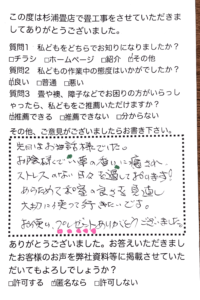 この度は杉浦畳店で畳工事をさせていただきま
してありがとうございました。
質問1 私どもをどちらでお知りになりましたか?
□チラシ □ホームページ □紹介 ☑その他
質問2 私どもの作業中の態度はいかがでしたか?
☑良い □普通 □悪い
質問3 畳や襖、障子などでお困りの方がいらっし
ゃったら、私どもをご推薦いただけますか?
☑推薦できる □推薦できない □分からない
その他、ご意見がございましたらお書き下さい。
先日はお世話様でした。
お陰様でいい草の香いに癒され、
ストレスのない日々を過しております!
あらためて和室の良さを見直し
大切に使って行きたいです。
お使い、プレゼントありがとうございました。
ありがとうございました。お答えいただきまし
たお客様のお声を弊社資料等に掲載させていた
だいてもよろしでしょうか?
□許可する ☑匿名なら □許可しない